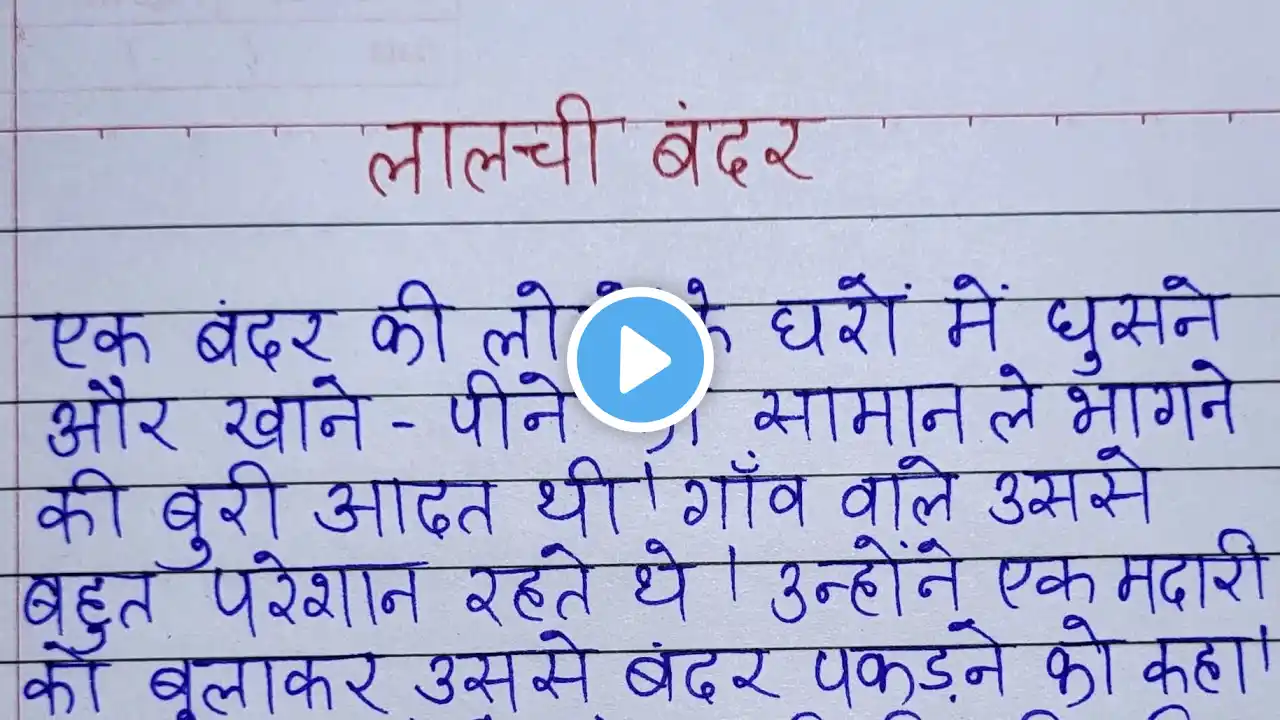 लालची बंदर
एक बंदर की के घरों में घुसने
और खाने - पीने सामान ले भागने
की बुरी आदत थी। गाँव वाले उससे
बहुत परेशान रहते थे। उन्होंने एक मदारी
को बुलाकर उससे बंदर पकड़ने को कहा।